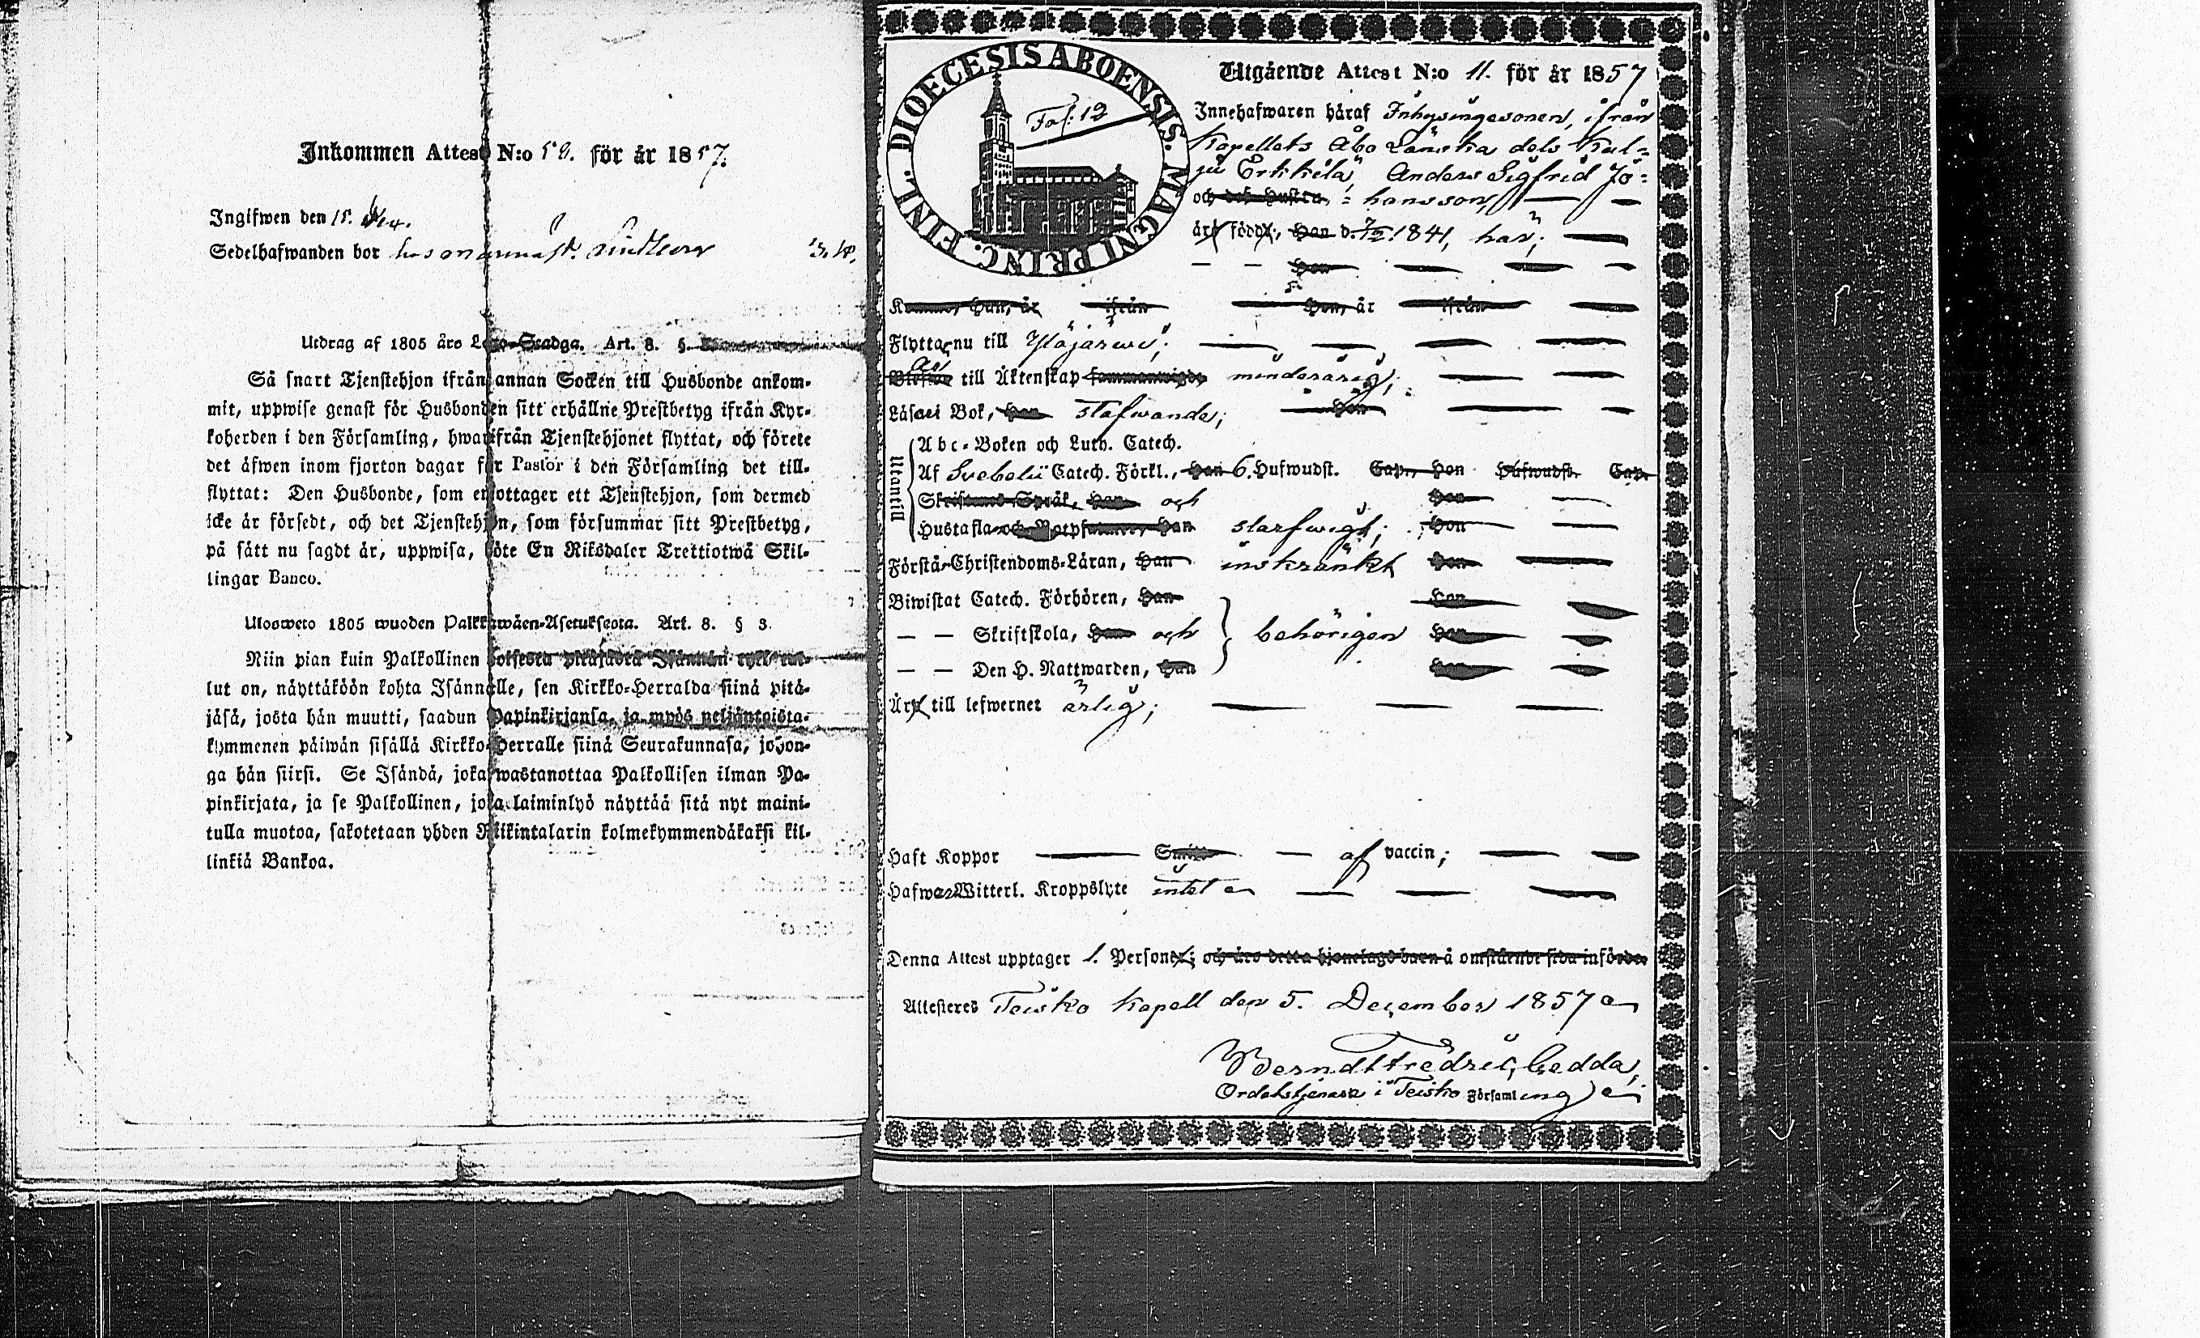 Inkommen Attest N:o 59. för år 1857.
Ingifwen den 15.
Sedelhafwanden bor
Utdrag af 1805 års Lego-Stadga. Art. 8. §.
Så snart Tjenstehjon ifrån annan Socken till Husbonde ankom-
mit, uppwise genast för Husbonden sitt erhållne Prestbetyg ifrån Kyr-
koherden i den Församling, hwarifrån Tjenstehjonet flyttat, och förete
det äfwen inom fjorton dagar för Pastor i den Församling det till-
flyttat: Den Husbonde, som emottager ett Tjenstehjon, som dermed
icke är försedt, och det Tjenstehjon, som försummar sitt Prestbetyg,
på sätt nu sagdt är, uppwisa, böte En Riksdaler Trettiotwå Skil-
lingar Banco.
Uloswето 1805 wuoden Palkkawäen-Asetuksesta. Art. 8. § 3.
Niin pian kuin Palkollinen toisesta pitäjästä Isännän tykö tul-
lut on, näyttäköön kohta Isännälle, sen Kirkko-Herralda siinä pitä-
jäsä, josta hän muutti, saadun Papinkirjansa, ja myös neljäntoista-
kymmenen päiwän sisällä Kirkko-Herralle siinä Seurakunnasa, johon-
ga hän siirsi. Se Isändä, joka wastanottaa Palkollisen ilman Pa-
pinkirjata, ja se Palkollinen, joka laiminlyö näyttää sitä nyt maini-
tulla muotoa, sakotetaan yhden Riikintalarin kolmekymmendäkaksi kil-
linkiä Bankoa.
DIOECESIS ABOENSIS. MAGNI PRINC. FINL.
Fol: 12
Utgående Attest N:o 11. för år 1857
Innehafwaren häraf Inhysingesonen, ifrån
Kapellets Åbo Länska dels Kul-
ju Erkkilä, Anders Sigfrid Jo-
och dess hustru, =hansson,
äro födde, Han d. 1841, har;
Hon
Komne, Han, år ifrån Hon, år ifrån
Flytta nu till Ylöjärwi;
till Äktenskap sammanwigde minderårig;
Läsa i Bok, Han stafwande; Hon
Utantill
Abc-Boken och Luth. Catech.
Af Svebelii Catech. Förkl., Han 6. Hufwudst. Cap., Hon Hufwudst. Cap.
Skriftenes Språk, Han och Hon
Hustafla och Han slarfwigt; Hon
Förstå Christendoms-Läran, Han inskränkt Hon
Biwistat Catech. Förhören, Han Hon
— — Skriftskola, Han och behörigen Hon
— — Den H. Nattwarden, Han Hon
Är till lefwernet ärlig;
Haft Koppor af vaccin;
Hafwa Witterl. Kroppslyte intet
Denna Attest upptager 1. Person; och äro detta hjonelags barn å omstående sida införde.
Attesteres Teisko Kapell den 5. December 1857
Berndt Fredric Gedda,
Ordetstjenare i Teisko Församling